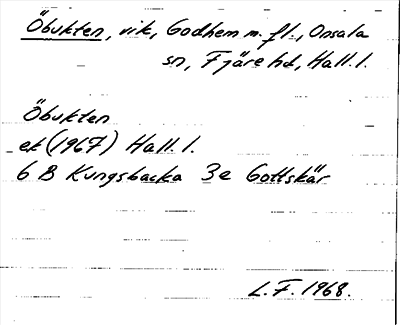 Öbukten, vik, Godhem m. fl., Onsala
sn, Fjäre hd, Hall. l.
Öbukten
ek (1967) Hall. l.
6 B Kungsbacka 3e Gottskär
L. F. 1968.